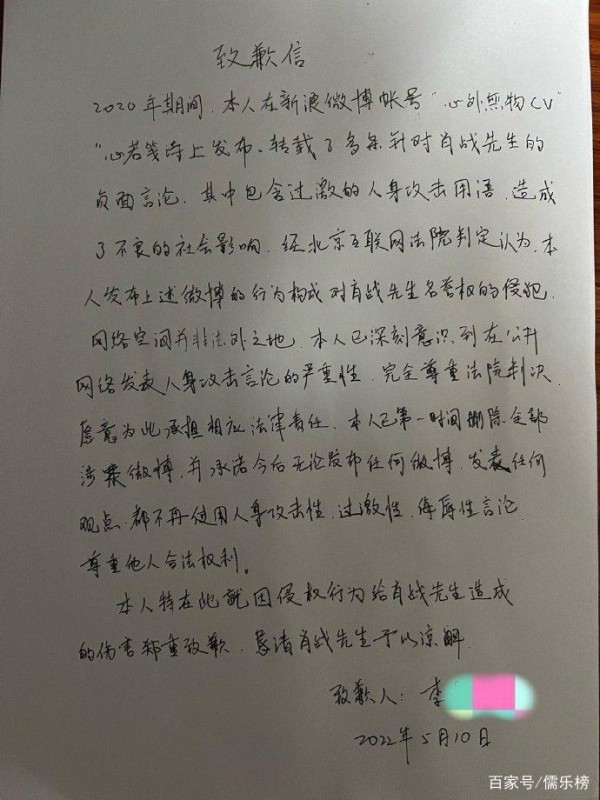 致歉信
2020年期间，本人在新浪微博帐号"心外無物CV"
"心若笺诗上发布、转载了多条针对肖战先生的
负面言论，其中包含过激的人身攻击用语，造成
了不良的社会影响，经北京互联网法院判定认为，本
人发布上述微博的行为构成对肖战先生名誉权的侵犯。
网络空间并非法外之地，本人已深刻意识到在公开
网络发表人身攻击言论的严重性，完全尊重法院判决，
愿意为此承担相应法律责任，本人已第一时间删除全部
涉案微博，并承诺今后无论发布任何微博，发表任何
观点，都不再使用人身攻击性、过激性、侮辱性言论，
尊重他人合法权利。
本人特在此就因侵权行为给肖战先生造成
的伤害郑重致歉，恳请肖战先生予以谅解
致歉人：李
2022年5月10日
百家号/儒乐榜